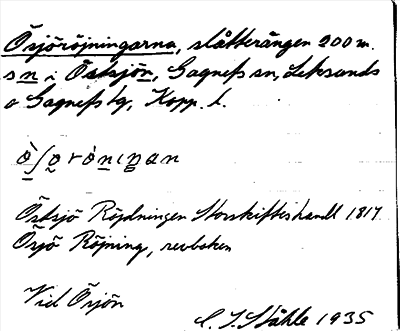 Ösjöröjningarna, slåtterängen 200 m.
s n i Östsjön, Gagnefs sn, Leksands
o Gagnefs tg, Kopp. l.
Östsjö Röjdningen Storskifteshandl 1817.
Ösjö Röjning, renboken
Vid Ösjön
C. I. Ståhle 1935